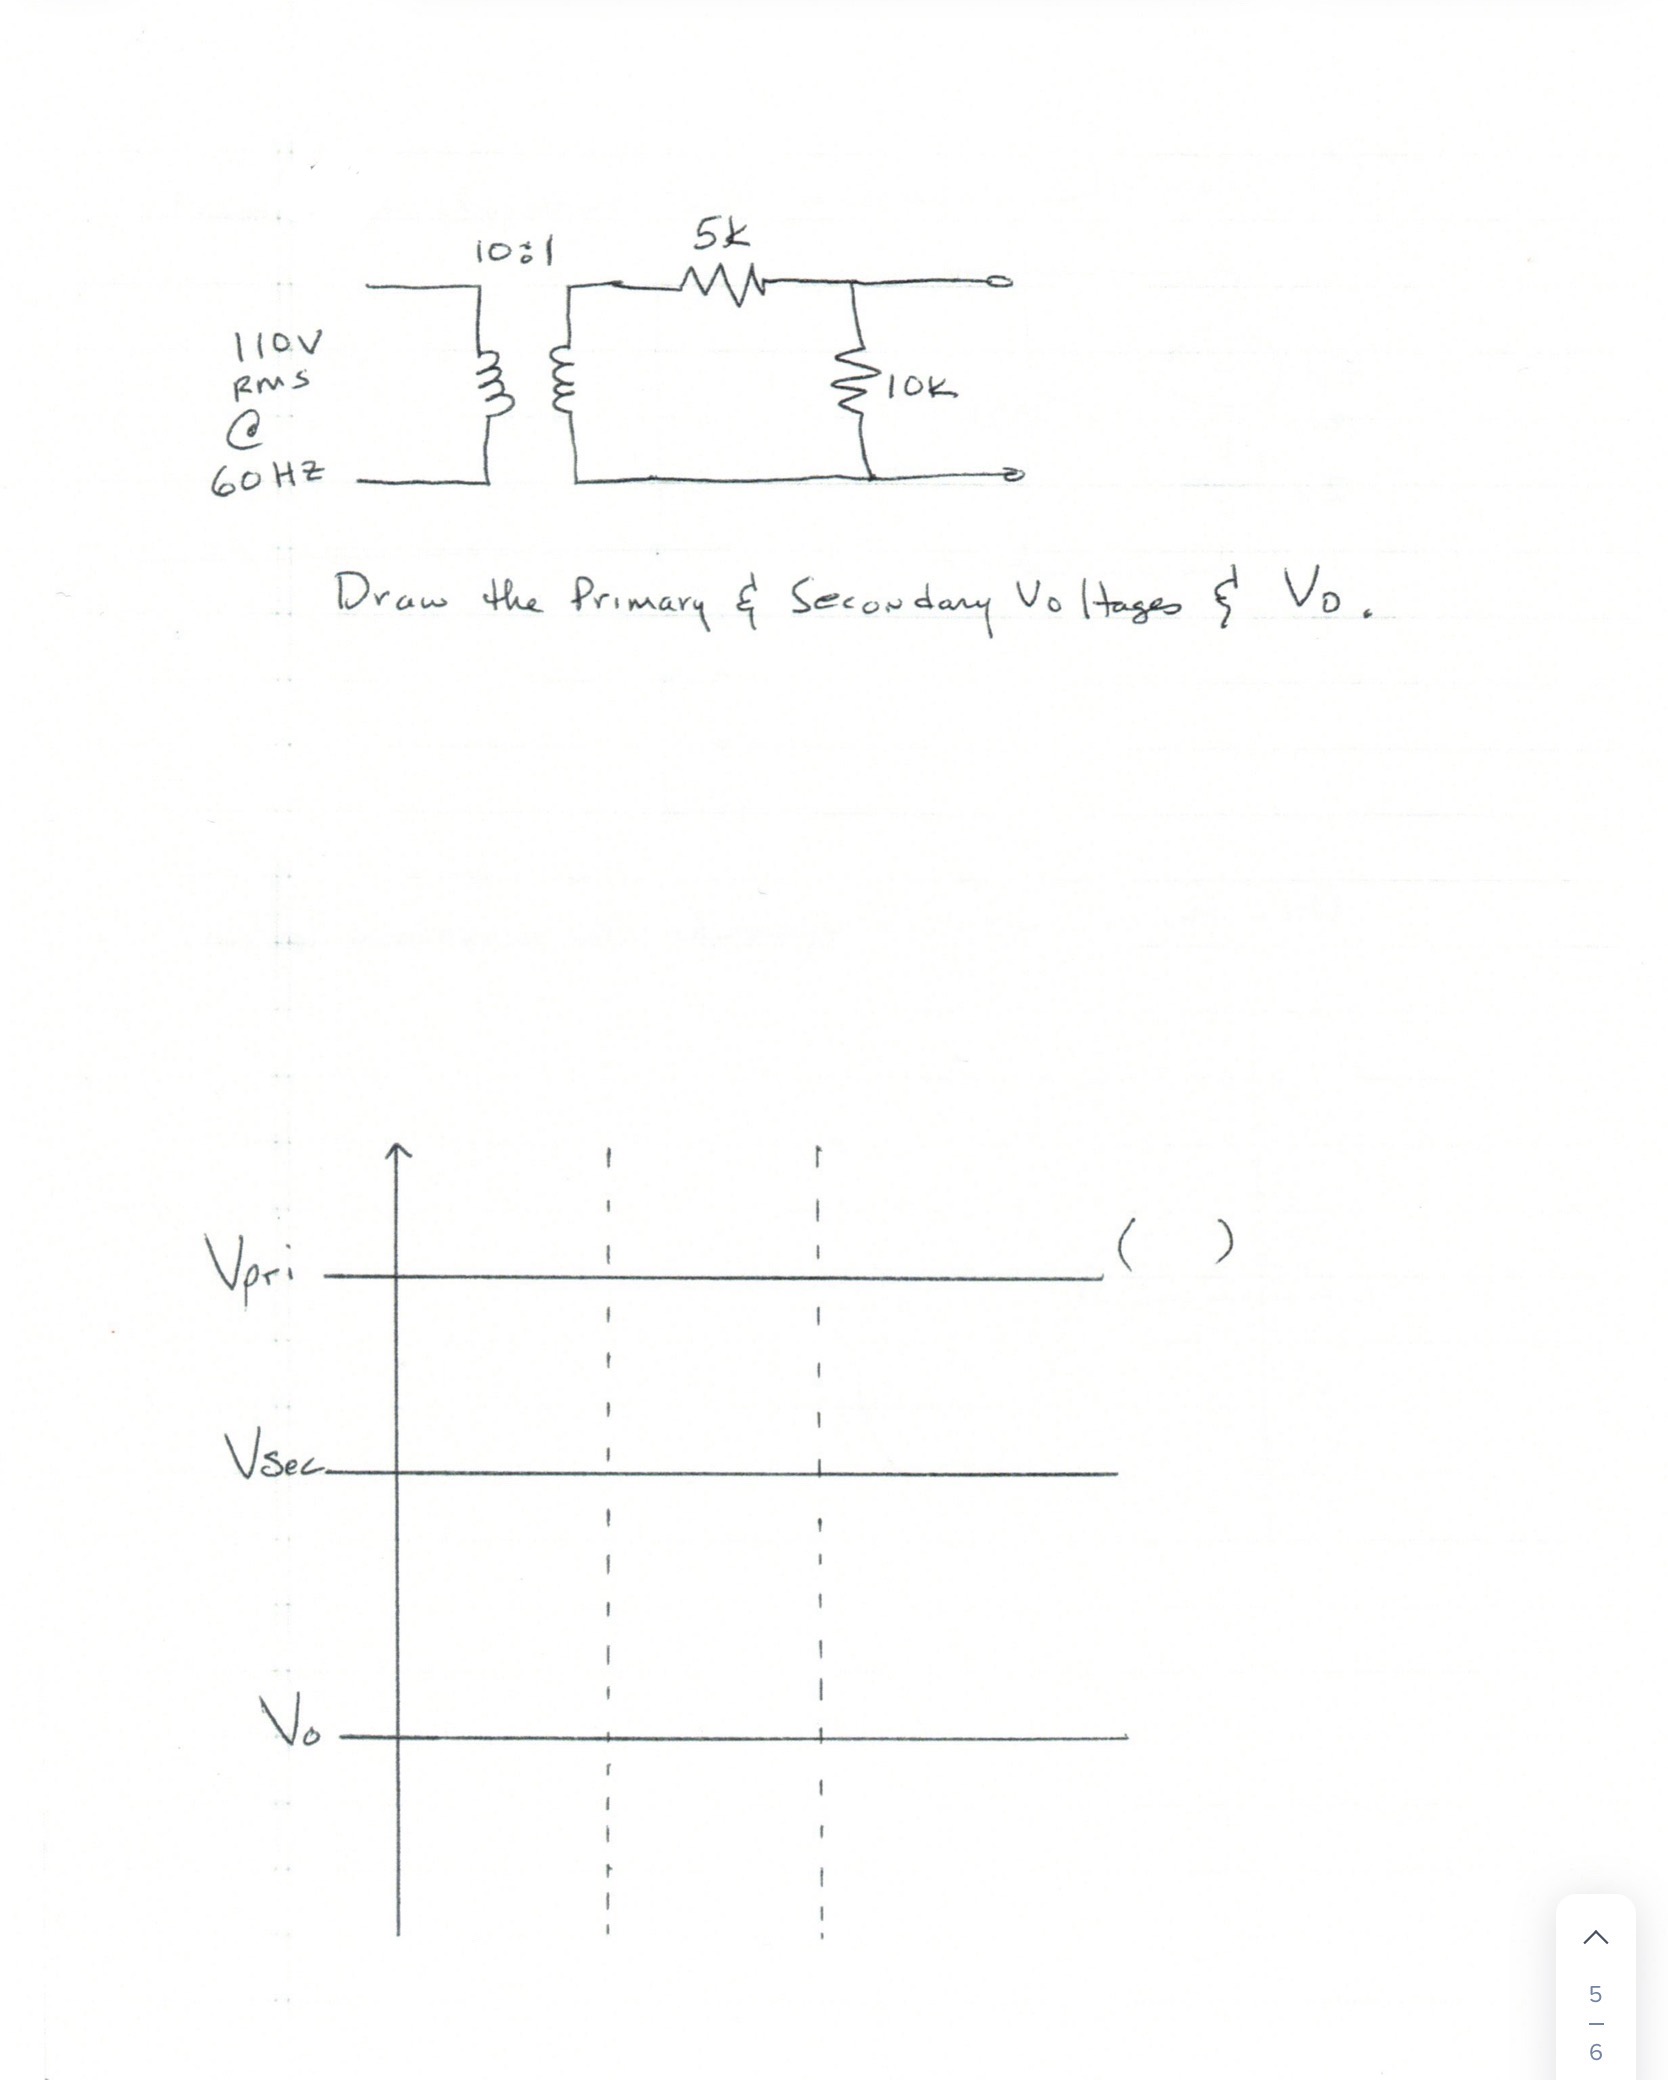 10:1
5k
110V
RMS
@
60HZ
10K
Draw the Primary & Secondary Voltages & Vo.
Vpri
( )
Vsec
Vo
5
6